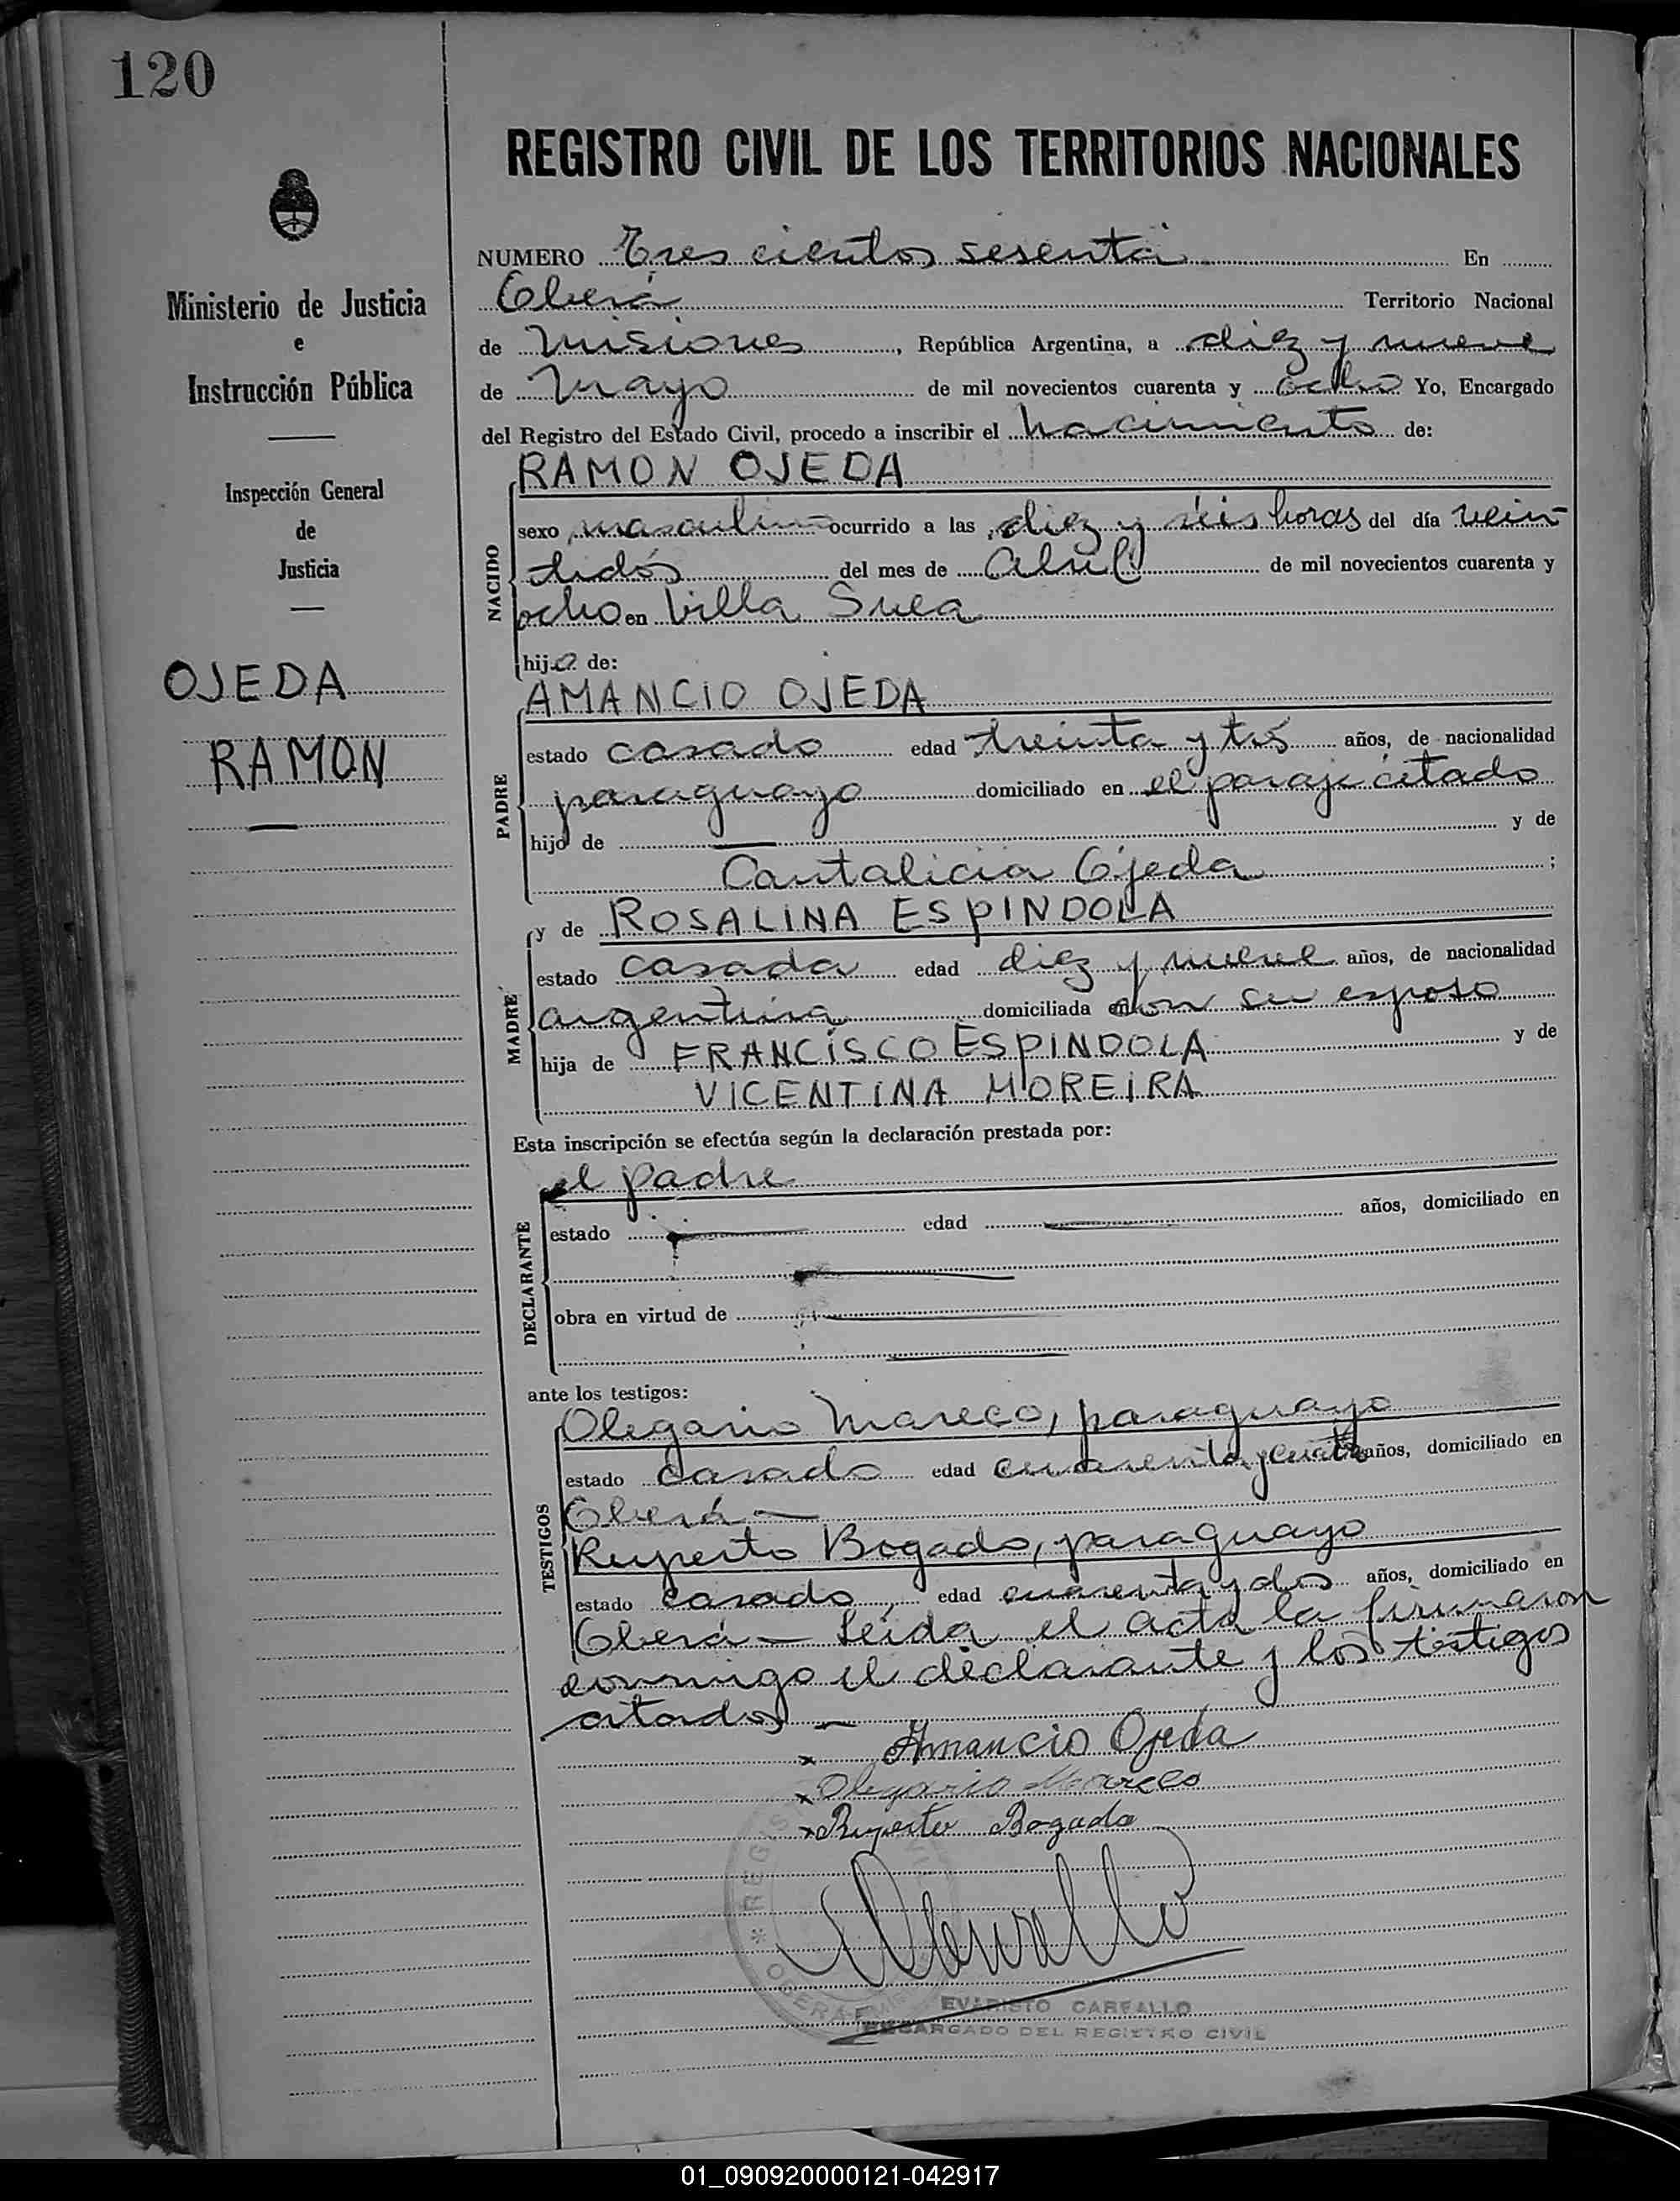 120
REGISTRO CIVIL DE LOS TERRITORIOS NACIONALES
Ministerio de Justicia
e
Instrucción Pública
Inspección General
de
Justicia
OJEDA
RAMON
NUMERO Tres cientos sesenta En
Oberá Territorio Nacional
de Misiones, República Argentina, a diez y nueve
de Mayo de mil novecientos cuarenta y ocho Yo, Encargado
del Registro del Estado Civil, procedo a inscribir el nacimiento de:
NACIDO
RAMON OJEDA
sexo masculino ocurrido a las diez y séis horas del día vein
tidós del mes de Abril de mil novecientos cuarenta y
ocho en Villa Sueca
hijo de:
PADRE
AMANCIO OJEDA
estado casado edad treinta y trés años, de nacionalidad
paraguayo domiciliado en el paraje citado
hijo de y de
Cantalicia Ojeda ;
MADRE
y de ROSALINA ESPINDOLA
estado casada edad diez y nueve años, de nacionalidad
argentina domiciliada con su esposo
hija de FRANCISCO ESPINDOLA y de
VICENTINA MOREIRA
Esta inscripción se efectúa según la declaración prestada por:
DECLARANTE
el padre
estado edad años, domiciliado en
obra en virtud de
ante los testigos:
TESTIGOS
Olegario Mareco, paraguayo
estado casado edad cuarenta y cuatro años, domiciliado en
Oberá —
Ruperto Bogado, paraguayo
estado casado, edad cuarenta y dos años, domiciliado en
Oberá — Leída el acta la firmaron
conmigo el declarante y los testigos
citados —
x Amancio Ojeda
x Olegario Mareco
x Ruperto Bogado
REGIS
OBERA
EVARISTO CARFALLO
ENCARGADO DEL REGISTRO CIVIL
01_090920000121-042917